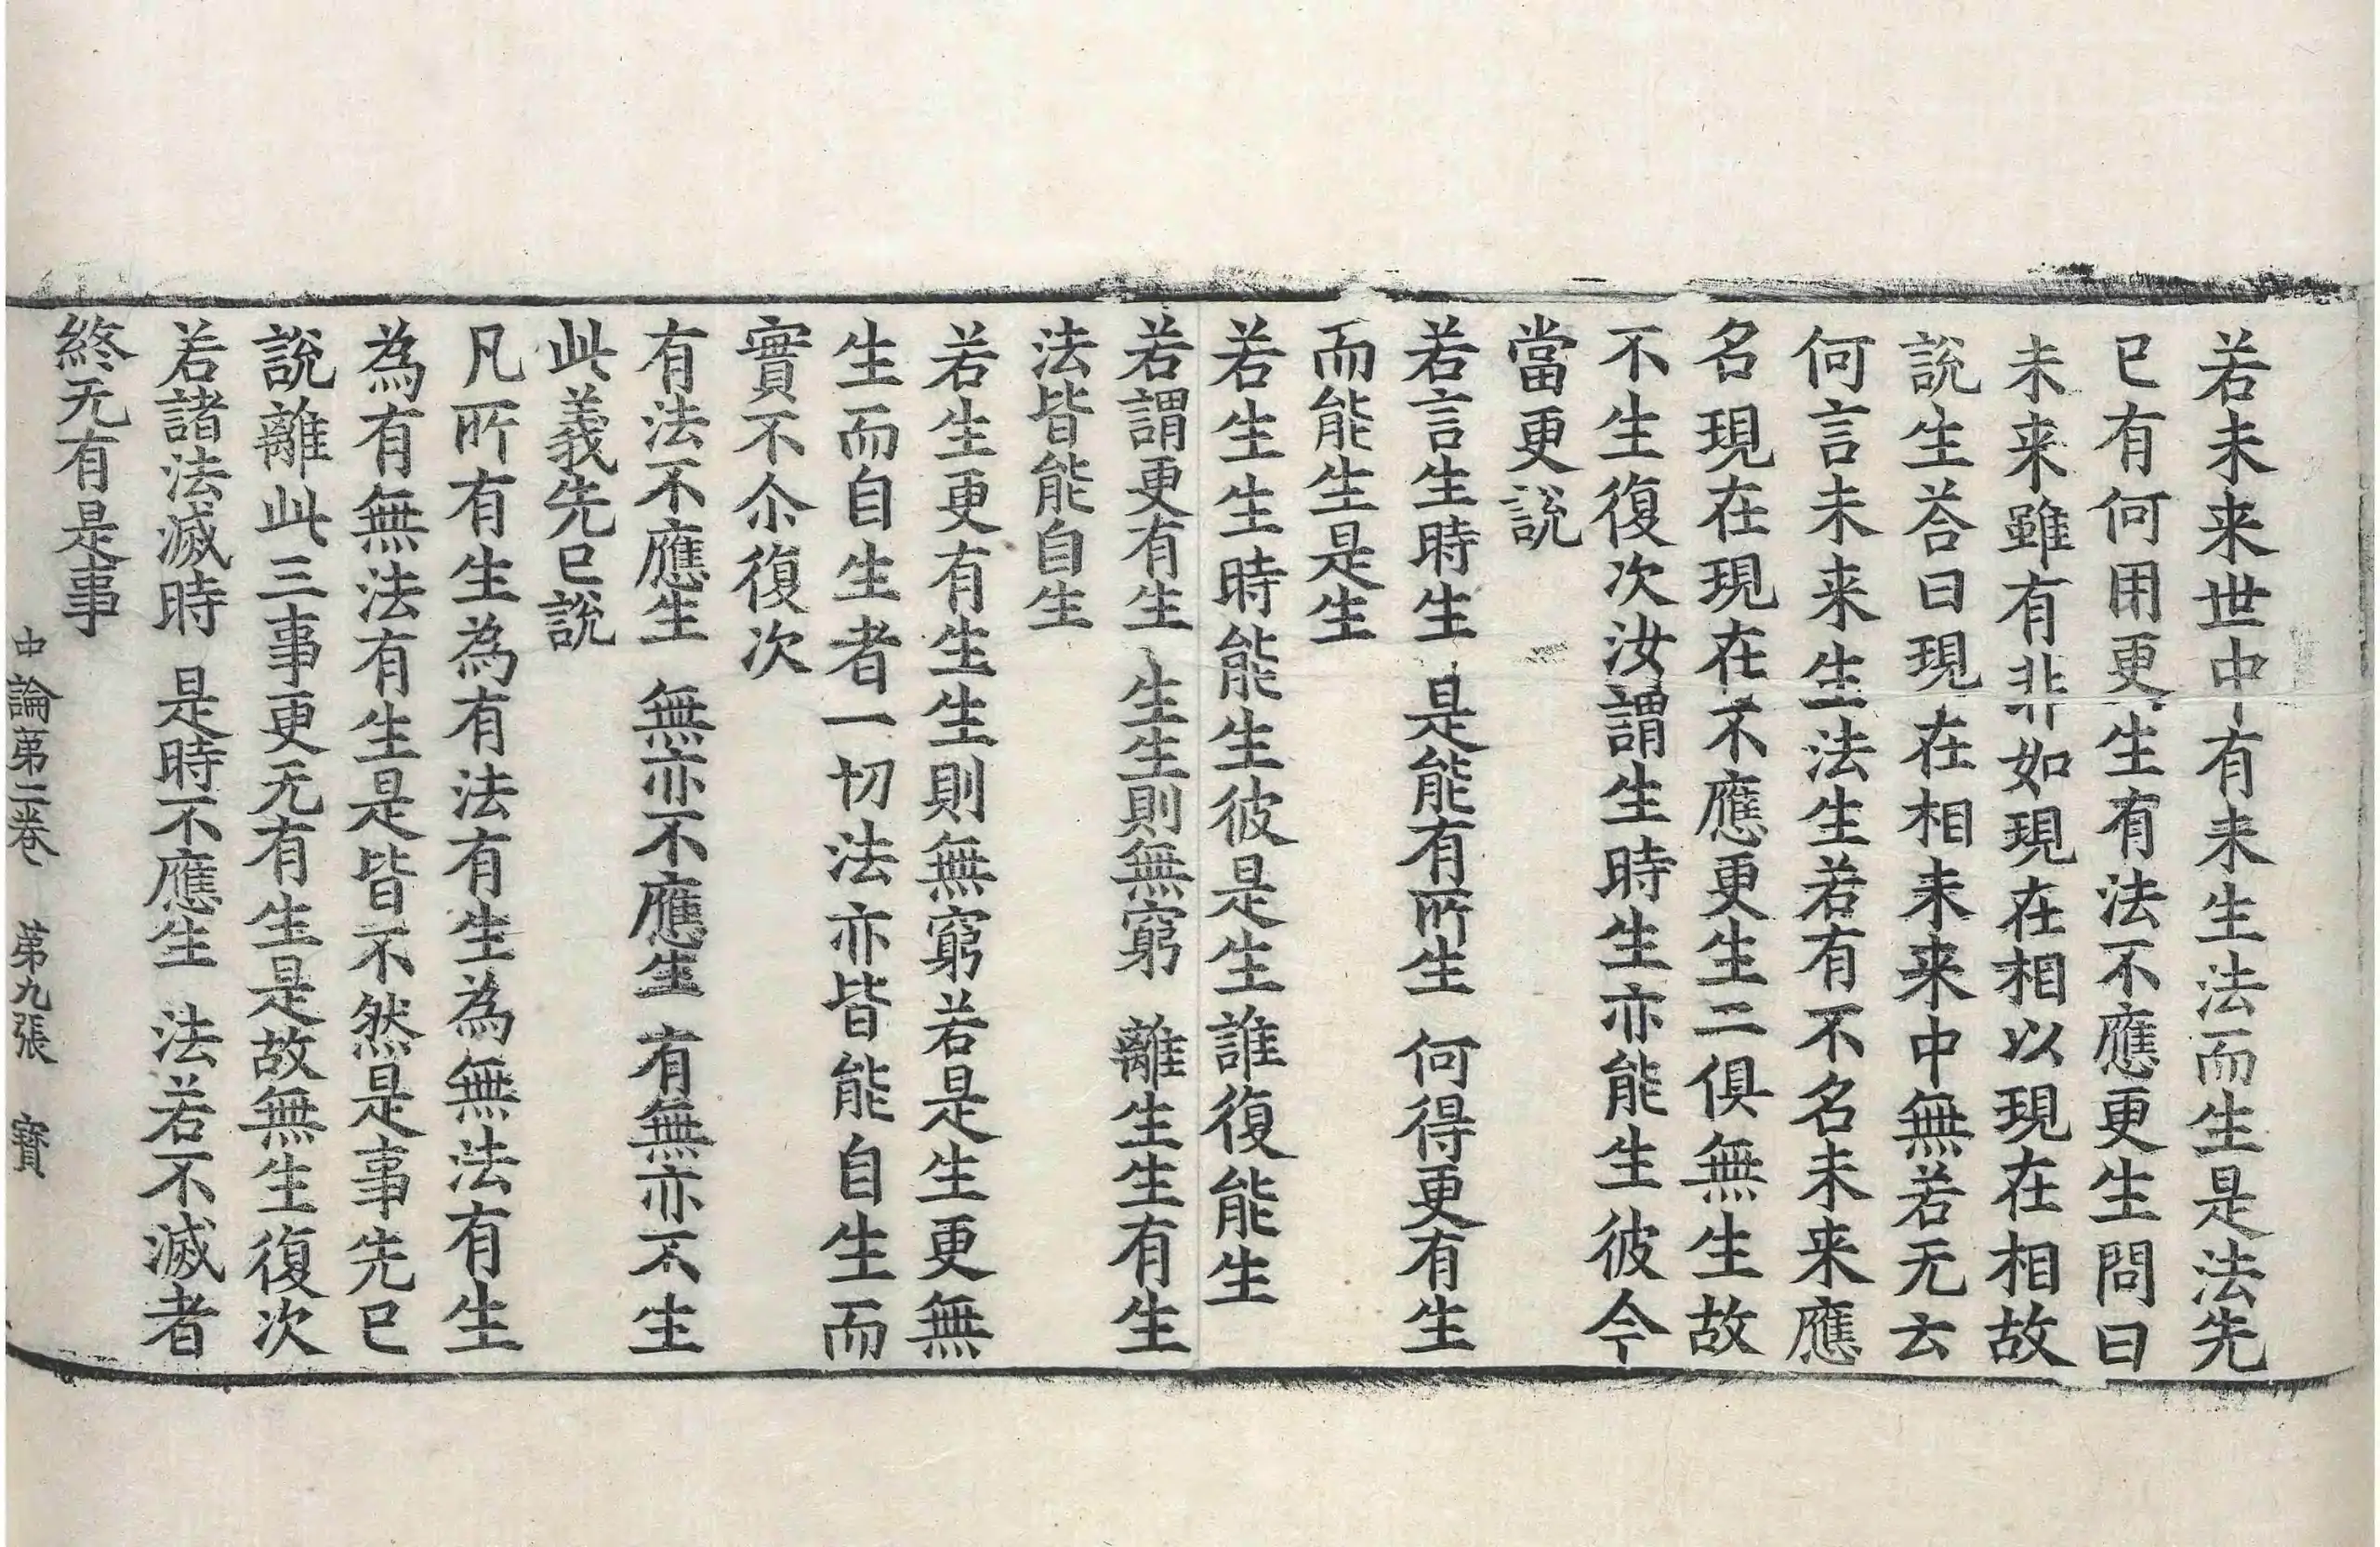 若未来世中有未生法而生是法先
已有何用更生有法不應更生問曰
未来雖有非如現在相以現在相故
說生荅曰現在相未来中無若无云
何言未来生法生若有不名未来應
名現在現在不應更生二俱無生故
不生復次汝謂生時生亦能生彼今
當更說
若言生時生　是能有所生　何得更有生
而能生是生
若生生時能生彼是生誰復能生
若謂更有生　生生則無窮　離生生有生
法皆能自生
若生更有生生則無窮若是生更無
生而自生者一切法亦皆能自生而
實不尒復次
有法不應生　無亦不應生　有無亦不生
此義先已說
凡所有生為有法有生為無法有生
為有無法有生是皆不然是事先已
說離此三事更无有生是故無生復次
若諸法滅時　是時不應生　法若不滅者
終无有是事
中論第二卷　第九張　寳